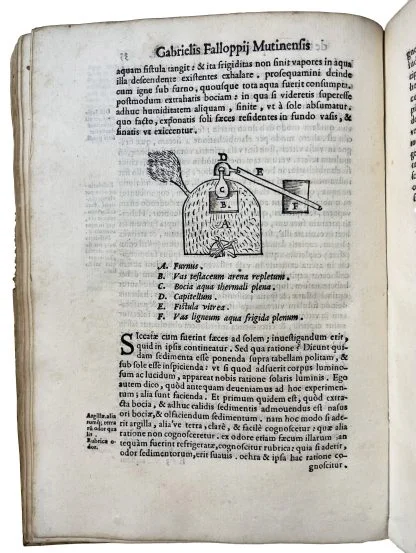 Gabrielis Falloppij Mutinensis
aquam fistula tangit: & ita frigiditas non sinit vapores in aqua
illa descendente existentes exhalare. prosequamini deinde
cum igne sub furno, quousque tota aqua fuerit consumpta.
postmodum extrahatis bociam: in qua si videretis superesse
adhuc humiditatem aliquam, sinite, vt à sole absumatur.
quo facto, exponatis soli fæces residentes in fundo vasis, &
sinatis vt exiccentur.
D
E
C
B
F
A
A. Furnus.
B. Vas testaceum arena repletum.
C. Bocia aqua thermali plena.
D. Capitellum.
E. Fistula vitrea.
F. Vas ligneum aqua frigida plenum.
Siccatæ cum fuerint fæces ad solem; inuestigandum erit,
quid in ipsis contineatur. Sed qua ratione? Dicunt qui-
dam sedimenta esse ponenda supra tabellam politam, &
sub sole esse inspicienda: vt si quod adfuerit corpus lumino-
sum ac lucidum, appareat nobis ratione solaris luminis. Ego
autem dico, quòd antequam deueniamus ad hoc experimen-
tum; alia sunt facienda. Et primum quidem est, quòd extra-
cta bocia, & adhuc calidis sedimentis admouendus est nasus
ori bociæ, & olfaciendum sedimentum. nam hoc modo si ade-
rit argilla, alia've terra, clarè, & facilè cognoscetur: quæ alia
ratione non cognosceretur. ex odore etiam fæcum illarum an-
tequam fuerint refrigeratæ, cognoscitur rubrica: quia si aderit,
odor sedimentorum, erit suauis. ochra & ipsa hac ratione co-
gnoscitur.
Argilla, alia
rumq; terra
rū odor qua
lis.
Rubricæ o-
dor.